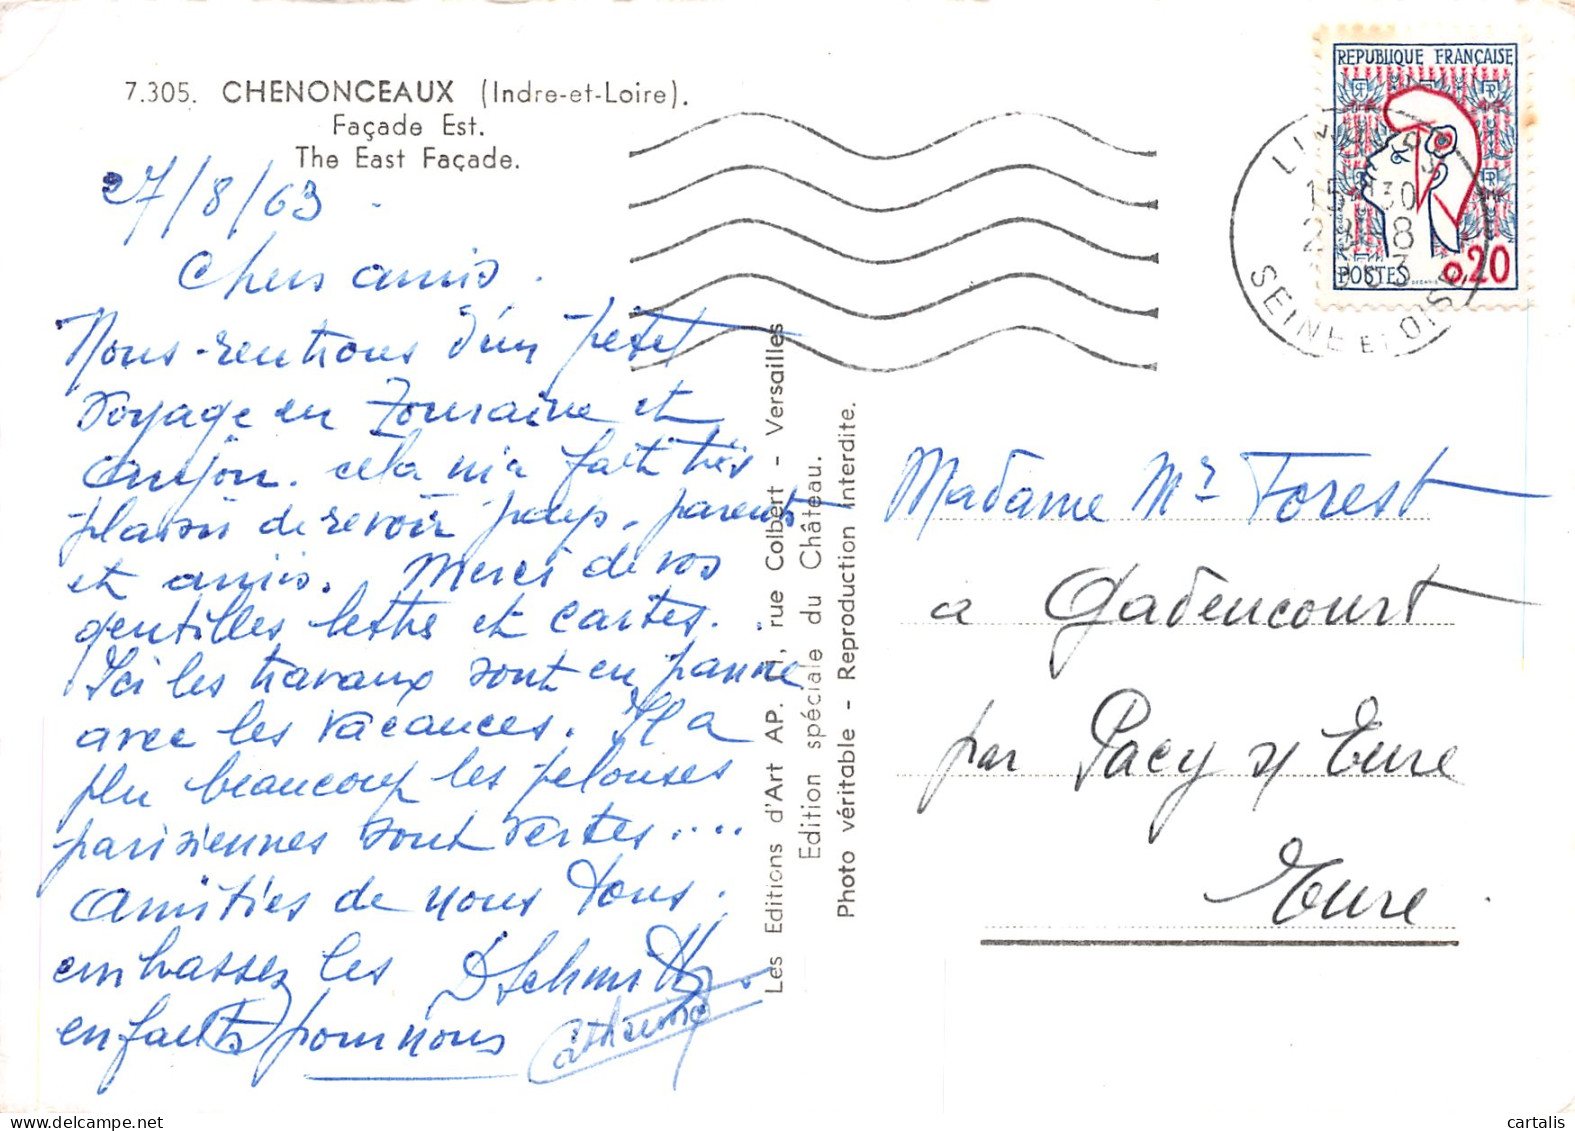 7.305. CHENONCEAUX (Indre-et-Loire).
Façade Est.
The East Façade.
27/8/63.
Chers amis.
Nous rentrons d'un petit
voyage en Touraine et
anjou. cela m'a fait très
plaisir de revoir pays, parents
et amis. Merci de vos
gentilles lettre et cartes.
Ici les travaux sont en panne
avec les vacances. Il a
plu beaucoup les pelouses
parisiennes sont vertes....
Amitiés de nous tous.
embrassez les
enfants pour nous
DSchmitt
Catherine
Les Editions d'Art AP. rue Colbert - Versailles
Edition spéciale du Château.
Photo véritable - Reproduction Interdite.
REPUBLIQUE FRANÇAISE
POSTES 0,20
15 30
8
SEINE ET OISE
Madame Mr Forest
a Gadencourt
par Pacy s/ Eure
Eure
cartalis